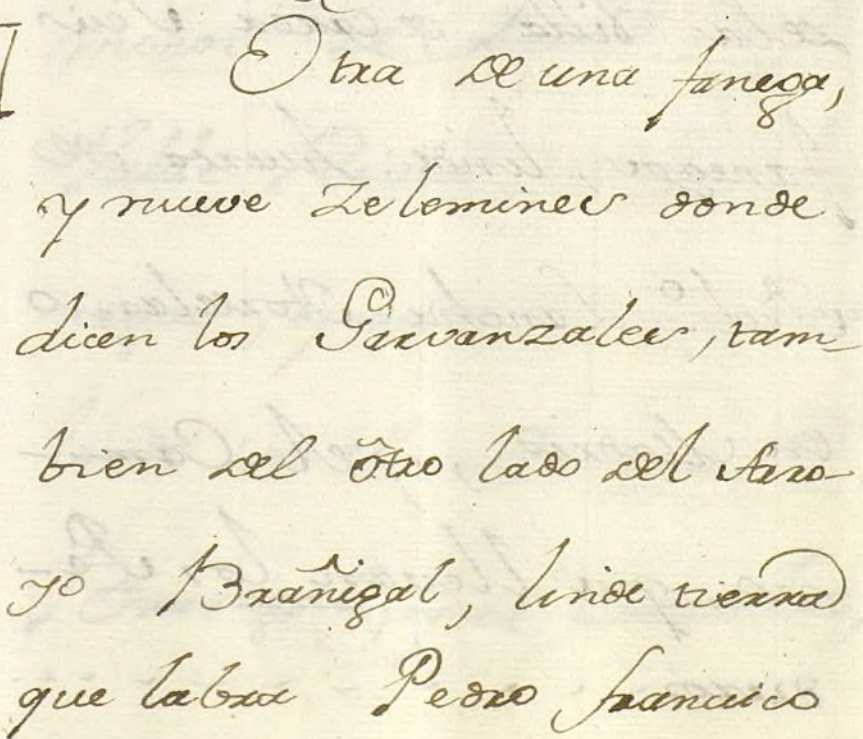 Otra de una fanega,
y nueve Zelemines donde
dicen los Garvanzales, tam-
bien del otro lado del Arro-
yo Brañigal, linde tierra
que labra Pedro francisco